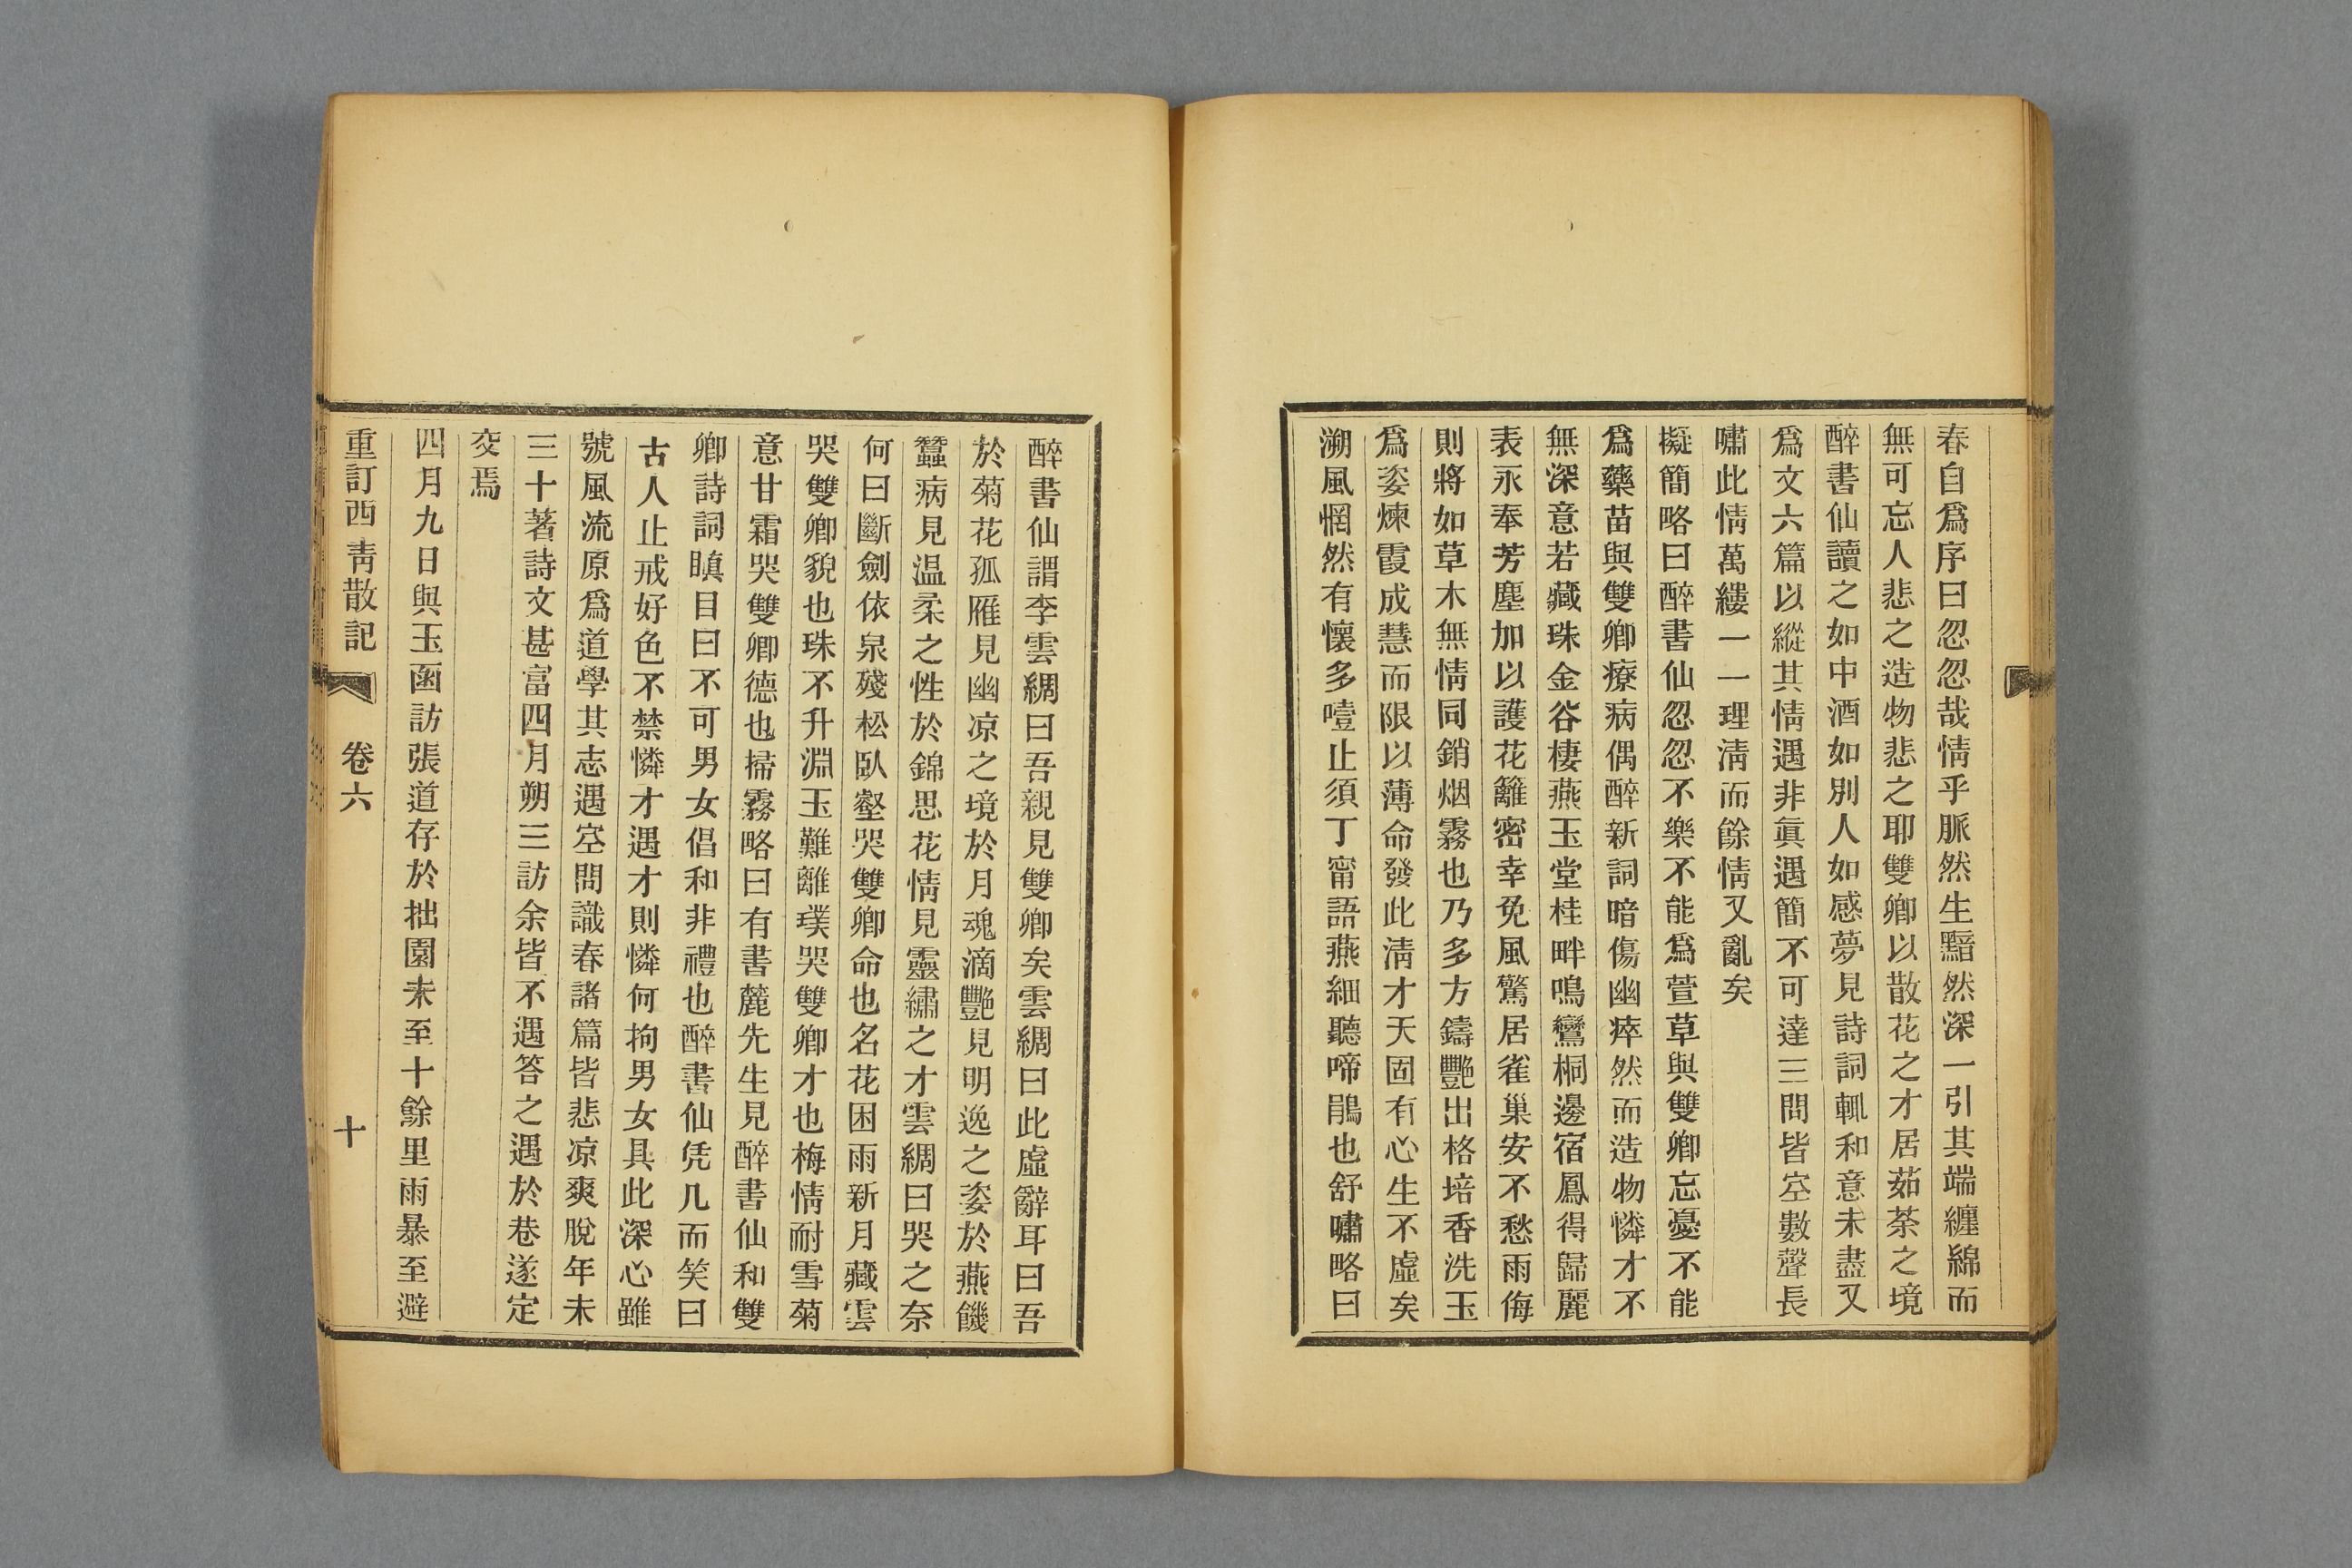 春自爲序曰忍忍哉情乎脈然生黯然深一引其端纏綿而
無可忘人悲之造物悲之耶雙卿以散花之才居茹荼之境
醉書仙讀之如中酒如別人如感夢見詩詞輒和意未盡又
爲文六篇以縱其情遇非眞遇簡不可達三問皆空數聲長
嘯此情萬縷一一理淸而餘情又亂矣
擬簡略曰醉書仙忍忍不樂不能爲萱草與雙卿忘憂不能
爲藥苗與雙卿療病偶醉新詞暗傷幽瘁然而造物憐才不
無深意若藏珠金谷棲燕玉堂桂畔鳴鸞桐邊宿鳳得歸麗
表永奉芳塵加以護花籬密幸免風驚居雀巢安不愁雨侮
則將如草木無情同銷烟霧也乃多方鑄艷出格培香洗玉
爲姿煉霞成慧而限以薄命發此淸才天固有心生不虛矣
溯風惘然有懷多噎止須丁甯語燕細聽啼鵑也舒嘯略曰
醉書仙謂李雲綢曰吾親見雙卿矣雲綢曰此虛辭耳曰吾
於菊花孤雁見幽凉之境於月魂滴艷見明逸之姿於燕饑
蠶病見温柔之性於錦思花情見靈繡之才雲綢曰哭之奈
何曰斷劍依泉殘松臥壑哭雙卿命也名花困雨新月藏雲
哭雙卿貌也珠不升淵玉難離璞哭雙卿才也梅情耐雪菊
意甘霜哭雙卿德也掃霧略曰有書麓先生見醉書仙和雙
卿詩詞瞋目曰不可男女倡和非禮也醉書仙凭几而笑曰
古人止戒好色不禁憐才遇才則憐何拘男女具此深心雖
號風流原爲道學其志遇空問識春諸篇皆悲凉爽脫年未
三十著詩文甚富四月朔三訪余皆不遇答之遇於巷遂定
交焉
四月九日與玉函訪張道存於拙園未至十餘里雨暴至避
重訂西靑散記 卷六 十